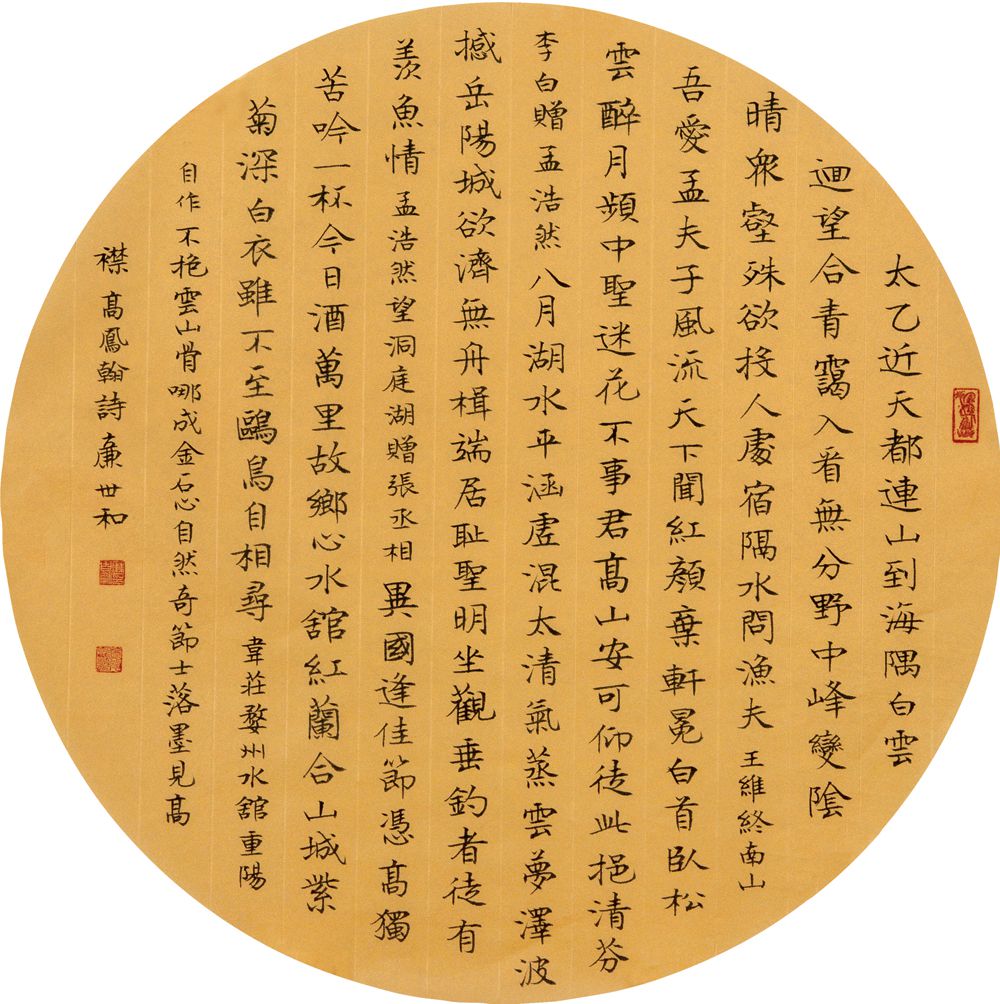 太乙近天都連山到海隅白雲
迴望合青靄入看無分野中峰變陰
晴衆壑殊欲投人處宿隔水問漁夫王維終南山
吾愛孟夫子風流天下聞紅顏棄軒冕白首臥松
雲醉月頻中聖迷花不事君髙山安可仰徒此挹清芬
李白贈孟浩然八月湖水平涵虛混太清氣蒸雲夢澤波
撼岳陽城欲濟無舟楫端居耻聖明坐觀垂釣者徒有
羨魚情孟浩然望洞庭湖贈張丞相異國逢佳節憑髙獨
苦吟一杯今日酒萬里故鄉心水舘紅蘭合山城紫
菊深白衣雖不至鷗鳥自相尋韋莊婺州水舘重陽
自作不抱雲山骨哪成金石心自然奇節士落墨見髙
襟髙鳳翰詩廉世和